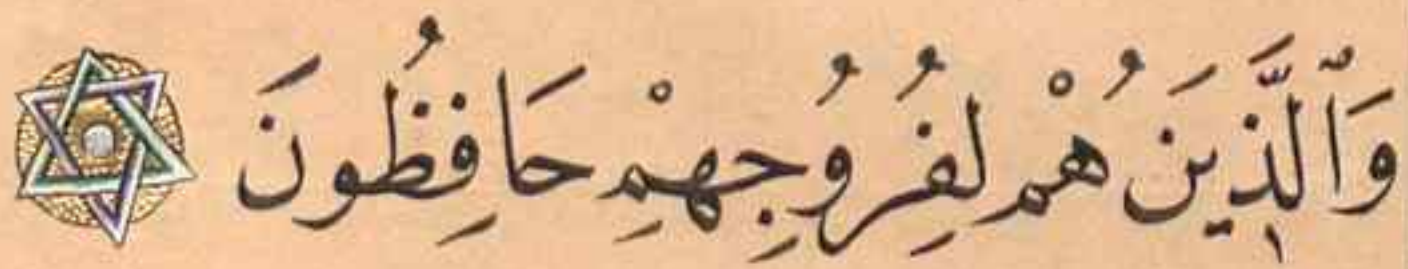 وَٱلَّذِينَ هُمْ لِفُرُوجِهِمْ حَافِظُونَ